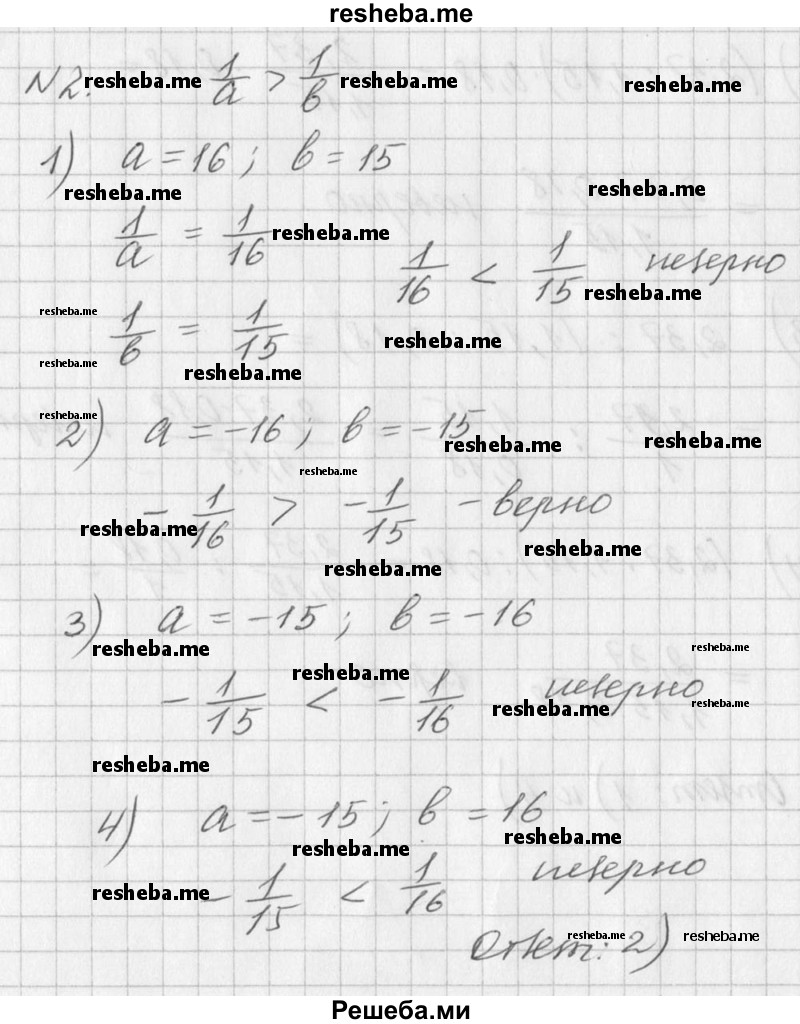 resheba.me
N2. resheba.me 1/a > 1/b resheba.me resheba.me
1) a = 16; b = 15
resheba.me resheba.me
1/a = 1/16 resheba.me
1/16 < 1/15 неверно
resheba.me resheba.me
1/b = 1/15
resheba.me resheba.me resheba.me
resheba.me
2) a = -16; b = -15
resheba.me resheba.me
resheba.me
- 1/16 > - 1/15 - верно
resheba.me resheba.me
resheba.me
3) a = -15; b = -16
resheba.me resheba.me
resheba.me
- 1/15 < - 1/16 неверно
resheba.me resheba.me
resheba.me
4) a = -15; b = 16
resheba.me resheba.me
- 1/15 < 1/16 неверно
resheba.me
Ответ: 2)
resheba.me resheba.me
Решеба.ми